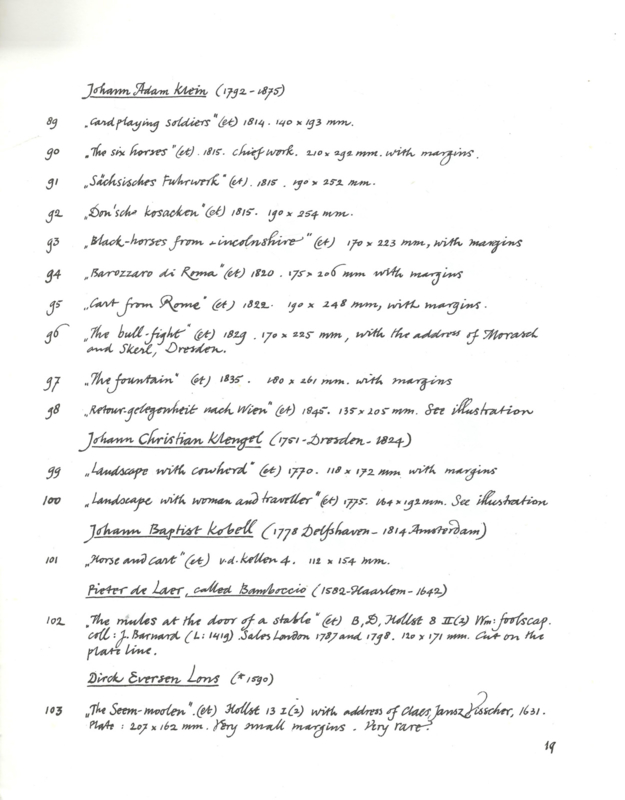 Johann Adam Klein (1792-1875)
89 „Cardplaying soldiers" (et) 1814. 140 x 193 mm.
90 „The six horses" (et). 1815. chief work. 210 x 292 mm. with margins.
91 „Sächsisches Fuhrwerk" (et). 1815. 190 x 252 mm.
92 „Don'sche kosacken" (et) 1815. 190 x 254 mm.
93 „Black-horses from Lincolnshire" (et) 170 x 223 mm, with margins
94 „Barozzaro di Roma" (et) 1820. 175 x 206 mm with margins
95 „Cart from Rome" (et) 1822. 190 x 248 mm, with margins.
96 „The bull-fight" (et) 1829. 170 x 225 mm, with the address of Morasch
and Skerl, Dresden.
97 „The fountain" (et) 1835. 180 x 261 mm. with margins
98 „Retour-gelegenheit nach Wien" (et) 1845. 135 x 205 mm. See illustration
Johann Christian Klengel (1751-Dresden-1824)
99 „Landscape with cowherd" (et) 1770. 118 x 172 mm with margins
100 „Landscape with woman and traveller" (et) 1775. 164 x 192 mm. See illustration
Johann Baptist Kobell (1778 Delfshaven-1814 Amsterdam)
101 „Horse and cart" (et) v.d. Kellen 4. 112 x 154 mm.
Pieter de Laer, called Bamboccio (1582-Haarlem-1642)
102 „The mules at the door of a stable" (et) B, D, Hollst 8 II(2) Wm: foolscap.
coll: J. Barnard (L: 1419) Sales London 1787 and 1798. 120 x 171 mm. Cut on the
plate line.
Dirck Eversen Lons (*1590)
103 „The Seem-moolen". (et) Hollst 13 I(2) with address of Claes Jansz Visscher, 1631.
Plate: 207 x 162 mm. Very small margins. Very rare?
19